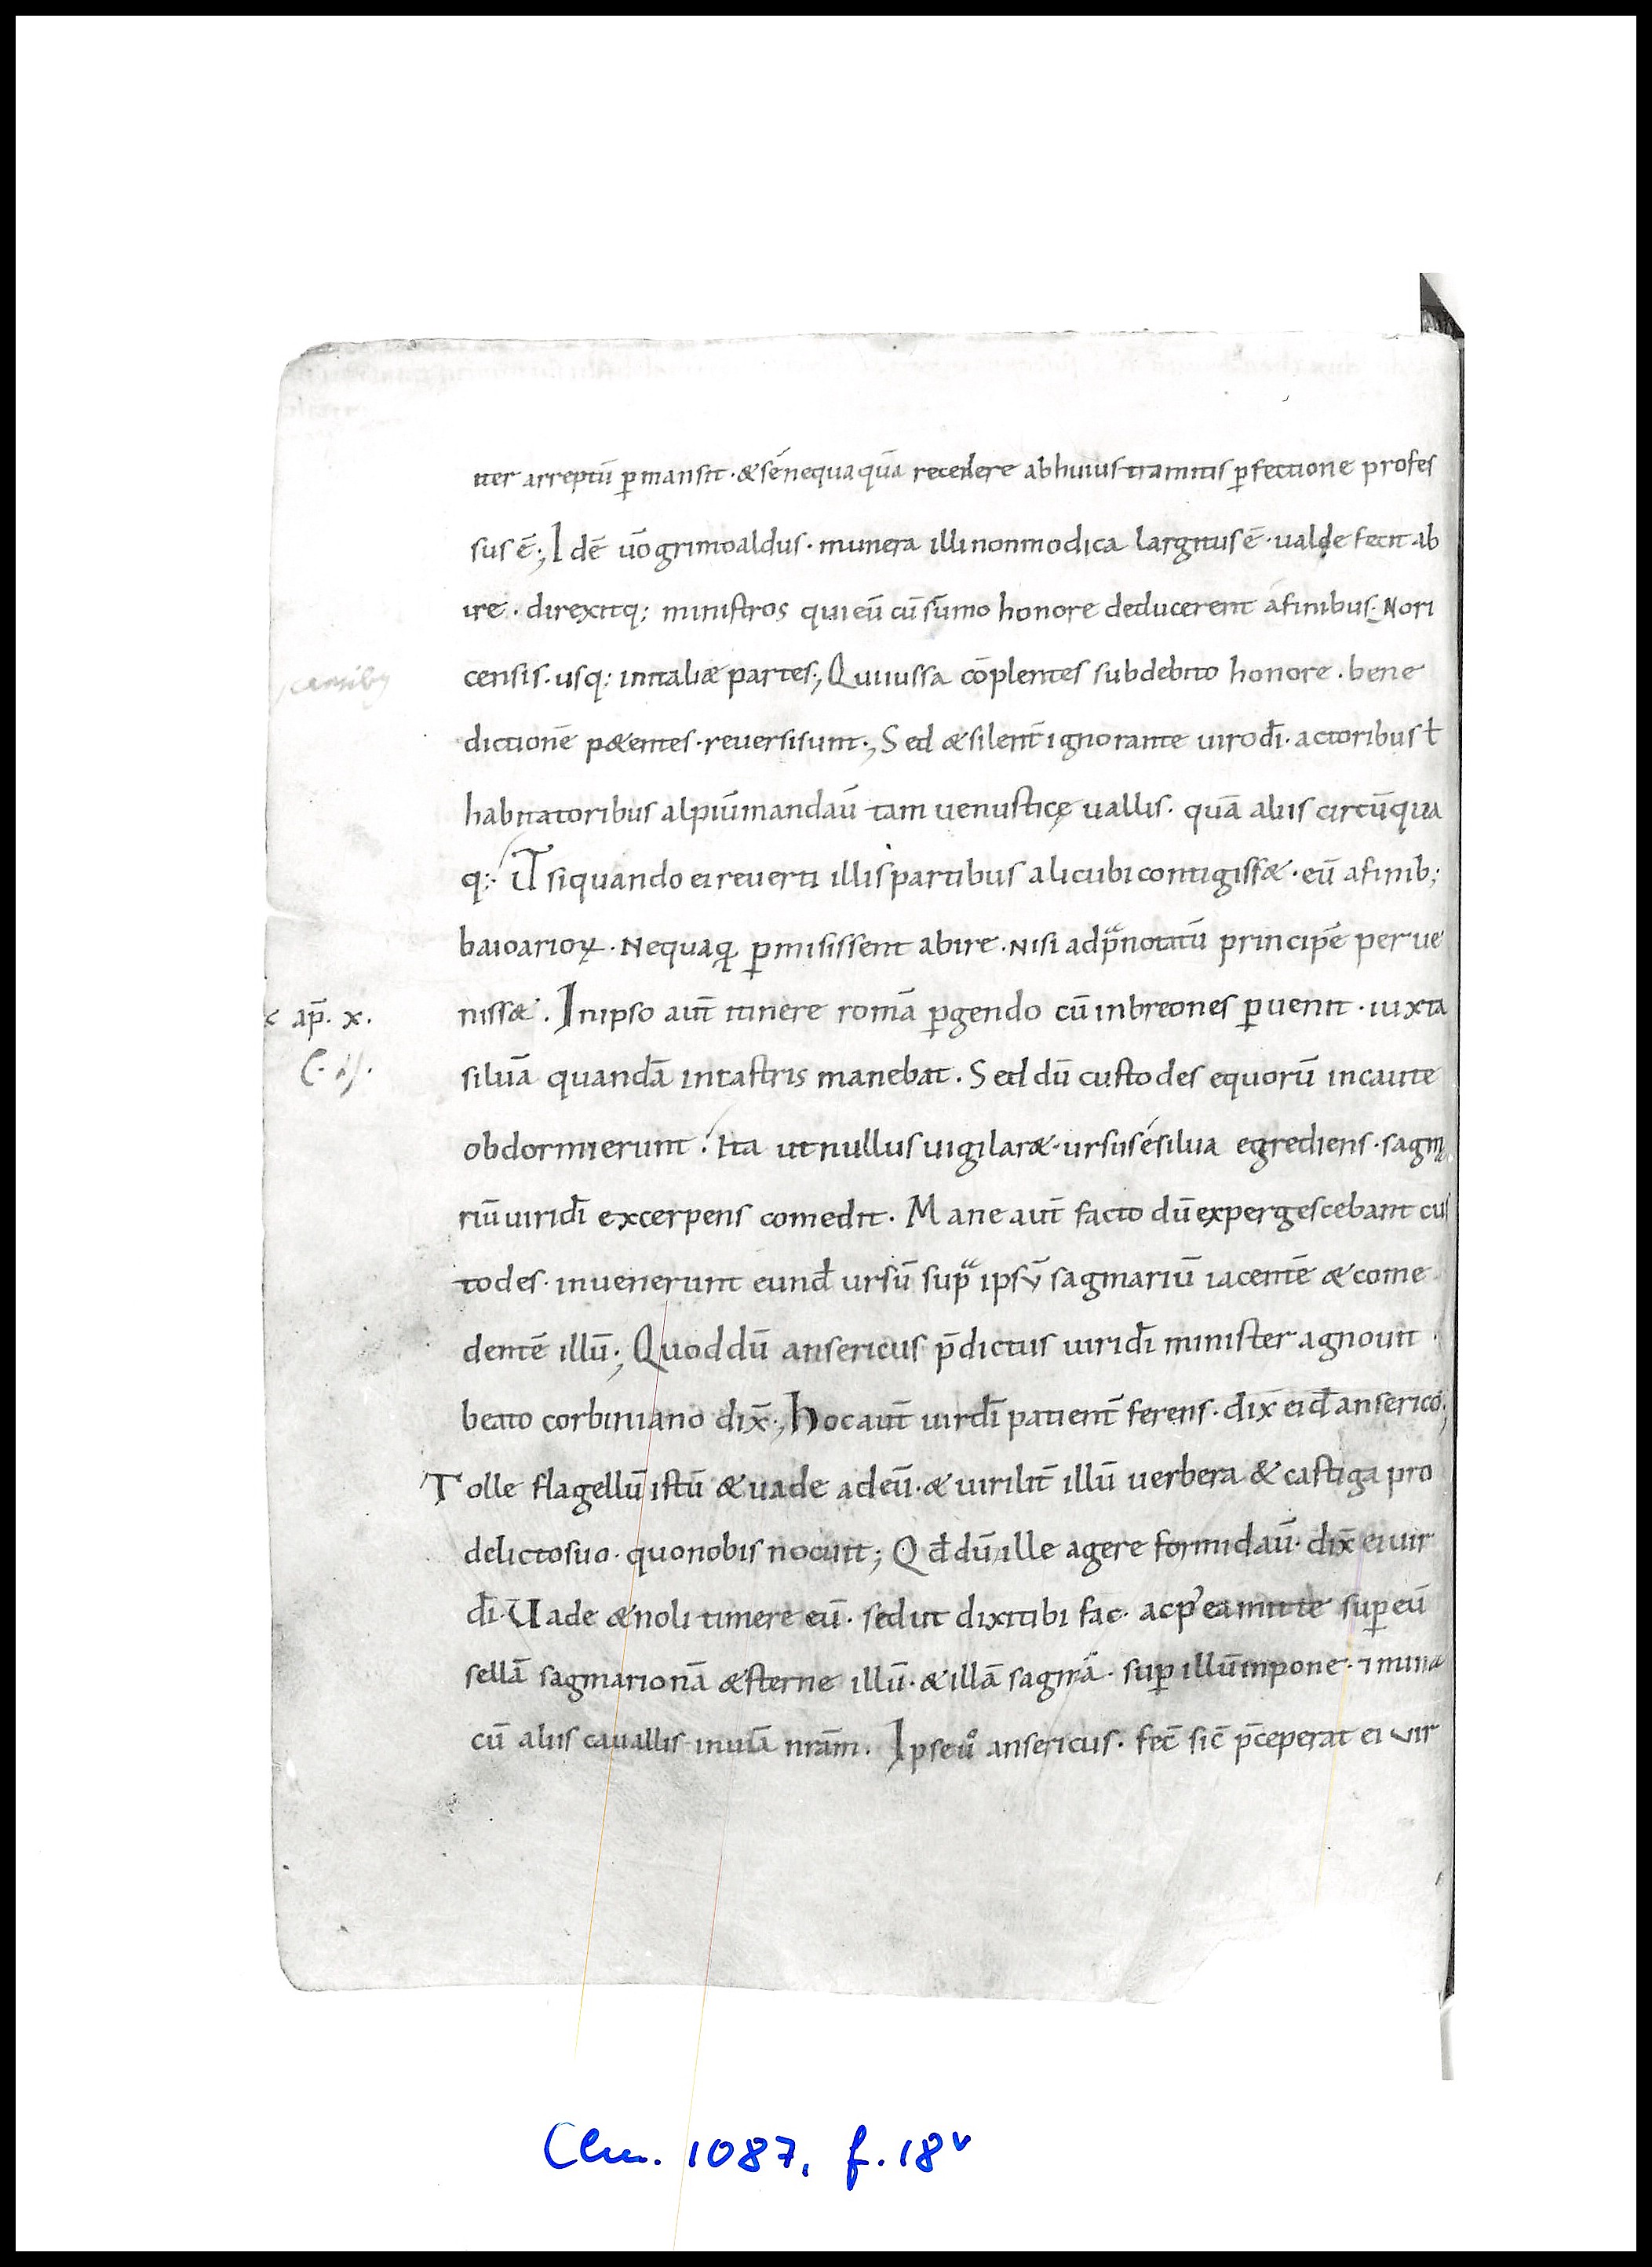 iter arreptū ꝑmansit · & sē nequaquā recedere ab huius tramitis ꝑfectione profes
sus ē ; Idē ūo grimoaldus · munera illi non modica largitus ē · ualde fecit ab
ire · direxitq; ministros qui eū cū sūmo honore deducerent a finibus · Nori
censis · usq; in italiæ partes ; Qui iussa cōplentes sub debito honore · bene
dictionē p&entes · reuersi sunt ; Sed & silent̄ ignorante uiro dī · actoribus ł
habitatoribus alpiū mandaū tam uenusticę uallis · quā aliis circūqua
q; · Ut si quando ei reuerti illis partibus alicubi contigiss& · eū a finib;
baioarioꝝ · Nequaq̄ ꝑmisissent abire · Nisi ad pͣnotatū principē perue
niss& · In ipso aut̄ itinere romā ꝑgendo cū in breones ꝑuenit · iuxta
x ap̄. x.
siluā quandā in castris manebat · Sed dū custodes equorū incaute
obdormierunt · Ita ut nullus uigilar& · ursus é silua egrediens · sagma
riū uiri dī excerpens comedit · Mane aut̄ facto dū expergescebant cus
todes · inuenerunt eunđ ursū supͣ ipsū sagmariū iacentē & come
dentē illū ; Quod dū ansericus p̄dictus uiri dī minister agnouit ·
beato corbiniano dix̄ ; hoc aut̄ uir dī patient̄ ferens · dix̄ eiđ anserico ;
Tolle flagellū istū & uade ad eū · & uirilit̄ illū uerbera & castiga pro
delicto suo · quo nobis nocuit ; Qđ dū ille agere formidaū · dix̄ ei uir
dī · Uade & noli timere eū · sed ut dixi tibi fac · ac p' ea mitte suꝑ eū
sellā sagmarionā & sterne illū · & illā sagmā · suꝑ illū inpone · ⁊ mina
cū aliis cauallis in uiā nr̄am · Ipse uº ansericus · fec̄ sic̄ p̄ceperat ei uir
Clm. 1087, f. 18v